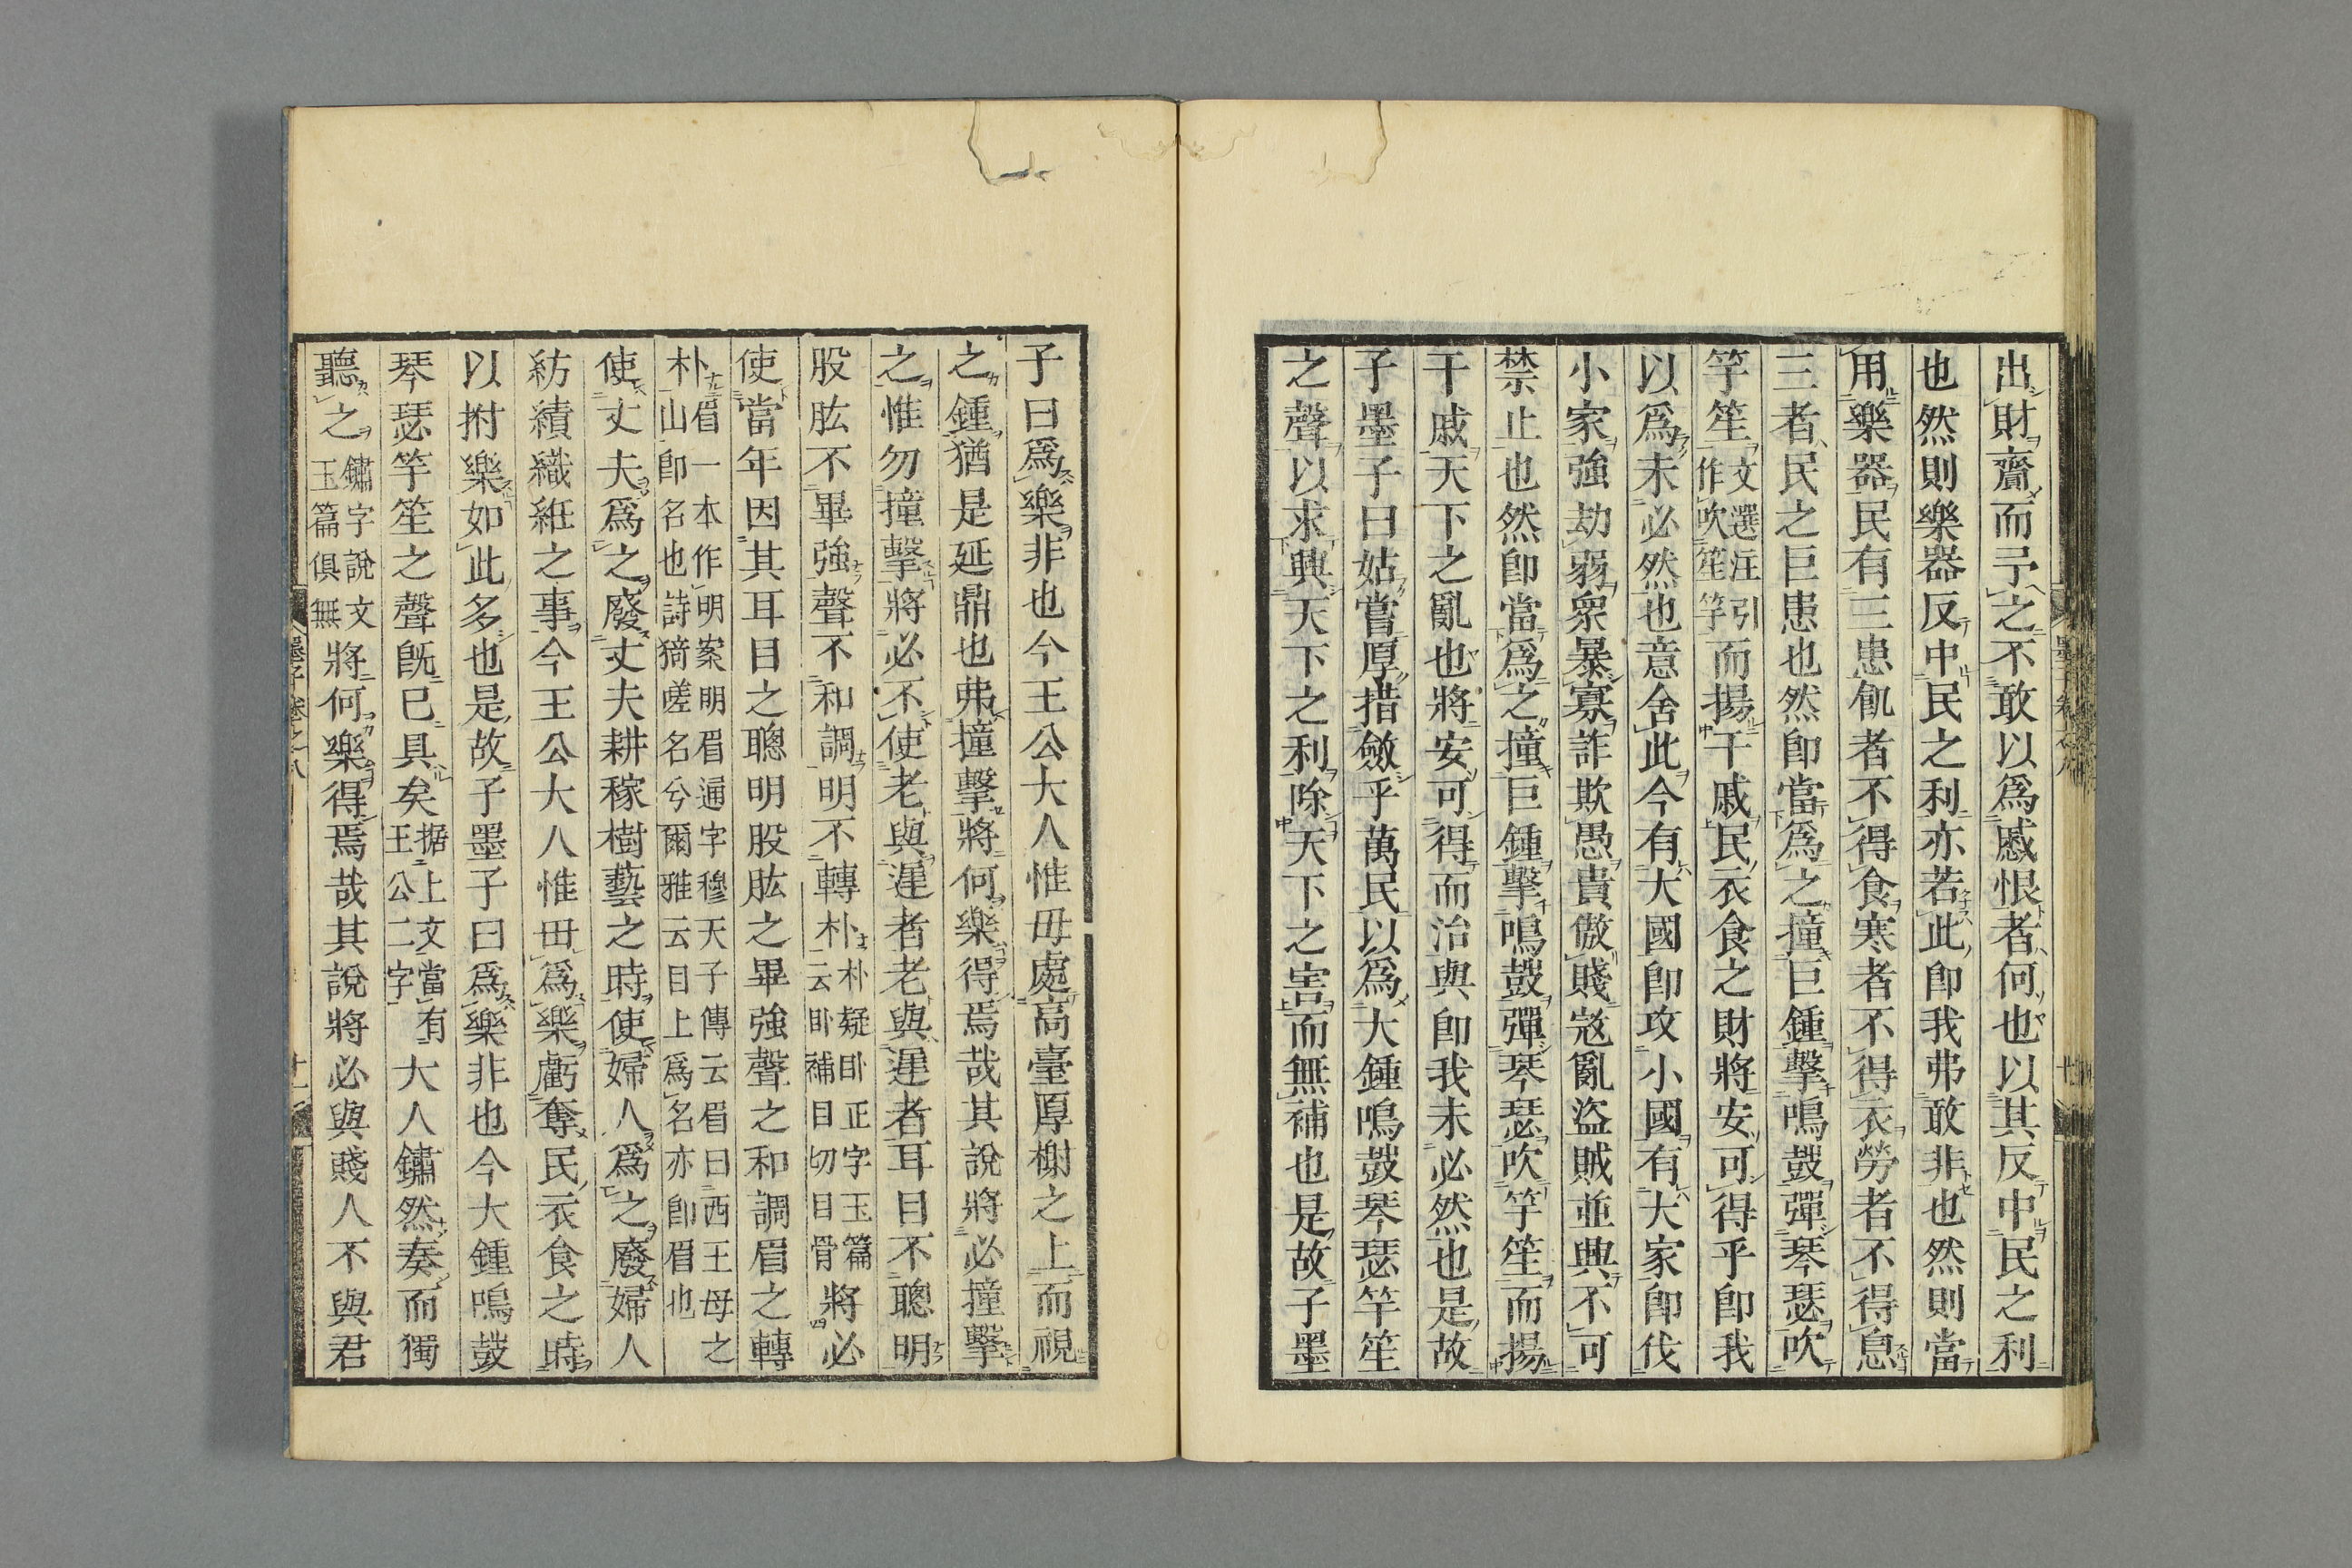 出財齎而予之不敢以爲慼恨者何也以其反中民之利
也然則樂器反中民之利亦若此卽我弗敢非也然則當
用樂器民有三患飢者不得食寒者不得衣勞者不得息
三者民之巨患也然卽當爲之撞巨鍾擊鳴鼓彈琴瑟吹
竽笙文選注引作吹笙竽而揚干戚民衣食之財將安可得乎卽我
以爲未必然也意舍此今有大國卽攻小國有大家卽伐
小家強劫弱衆暴寡詐欺愚貴傲賤寇亂盜賊並興不可
禁止也然卽當爲之撞巨鍾擊鳴鼓彈琴瑟吹竽笙而揚
干戚天下之亂也將安可得而治與卽我未必然也是故
子墨子曰姑嘗厚措斂乎萬民以爲大鍾鳴鼓琴瑟竽笙
之聲以求興天下之利除天下之害而無補也是故子墨
子曰爲樂非也今王公大人惟毋處高臺厚榭之上而視
之鍾猶是延鼎也弗撞擊將何樂得焉哉其說將必撞擊
之惟勿撞擊將必不使老與遲者老與遲者耳目不聰明
股肱不畢強聲不和調明不轉朴朴疑卧正字玉篇云卧補目切目骨將必
使當年因其耳目之聰明股肱之畢強聲之和調眉之轉
朴眉一本作明案明眉通字穆天子傳云眉曰西王母之山卽名也詩猗嗟名兮爾雅云目上爲名亦卽眉也
使丈夫爲之廢丈夫耕稼樹藝之時使婦人爲之廢婦人
紡績織紝之事今王公大人惟毋爲樂虧奪民衣食之時
以拊樂如此多也是故子墨子曰爲樂非也今大鍾鳴鼓
琴瑟竽笙之聲旣已具矣据上文當有王公二字大人鏽然奏而獨
聽之鏽字說文玉篇俱無將何樂得焉哉其說將必與賤人不與君
墨子卷之八
十一